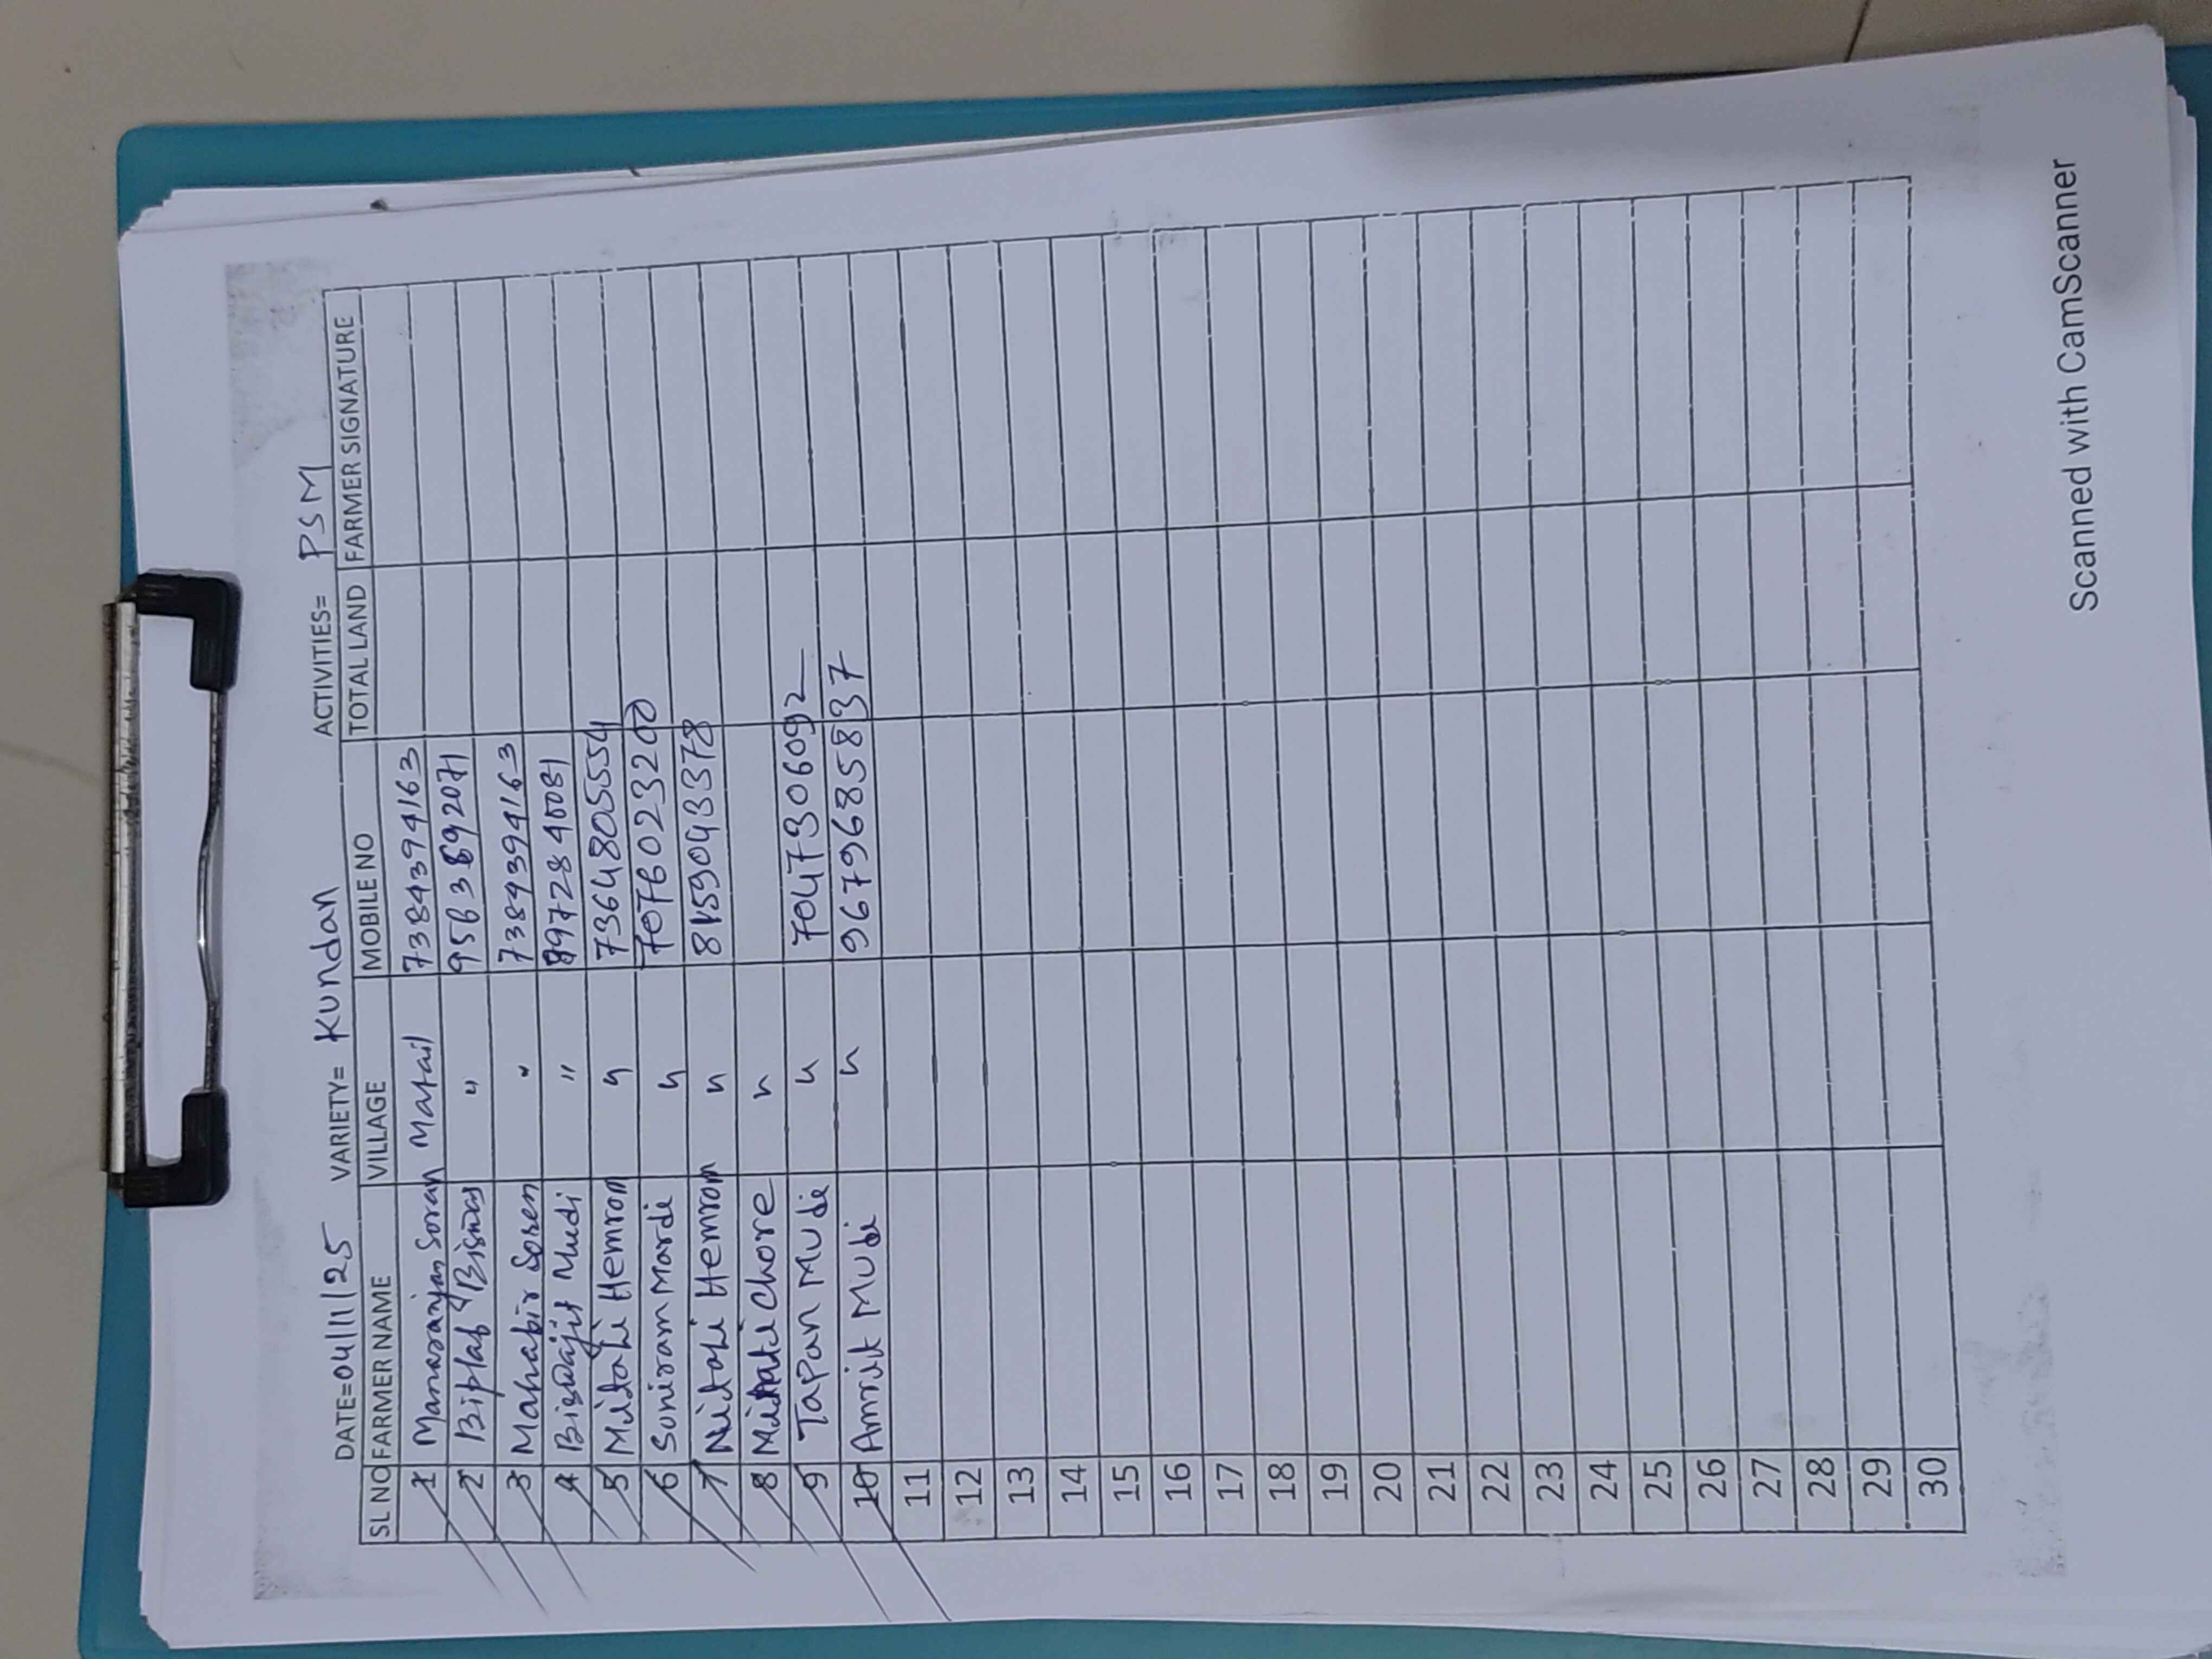 DATE=04/11/25 VARIETY= Kundan ACTIVITIES= PSM
SL NO FARMER NAME VILLAGE MOBILE NO TOTAL LAND FARMER SIGNATURE
1 Manaranjan Soran Matail 7384394163
2 Biplab Biswas " 9563892071
3 Mahabir Soren " 7389394163
4 Biswajit Mudi " 8972840081
5 Mitali Hemron " 7364805554
6 Soniram Mardi " 7076023200
7 Nitali Hemrom " 8159043378
8 Chore "
9 Tapan Mudi " 7047306092
10 Amrit Mudi " 9679685837
11
12
13
14
15
16
17
18
19
20
21
22
23
24
25
26
27
28
29
30
Scanned with CamScanner